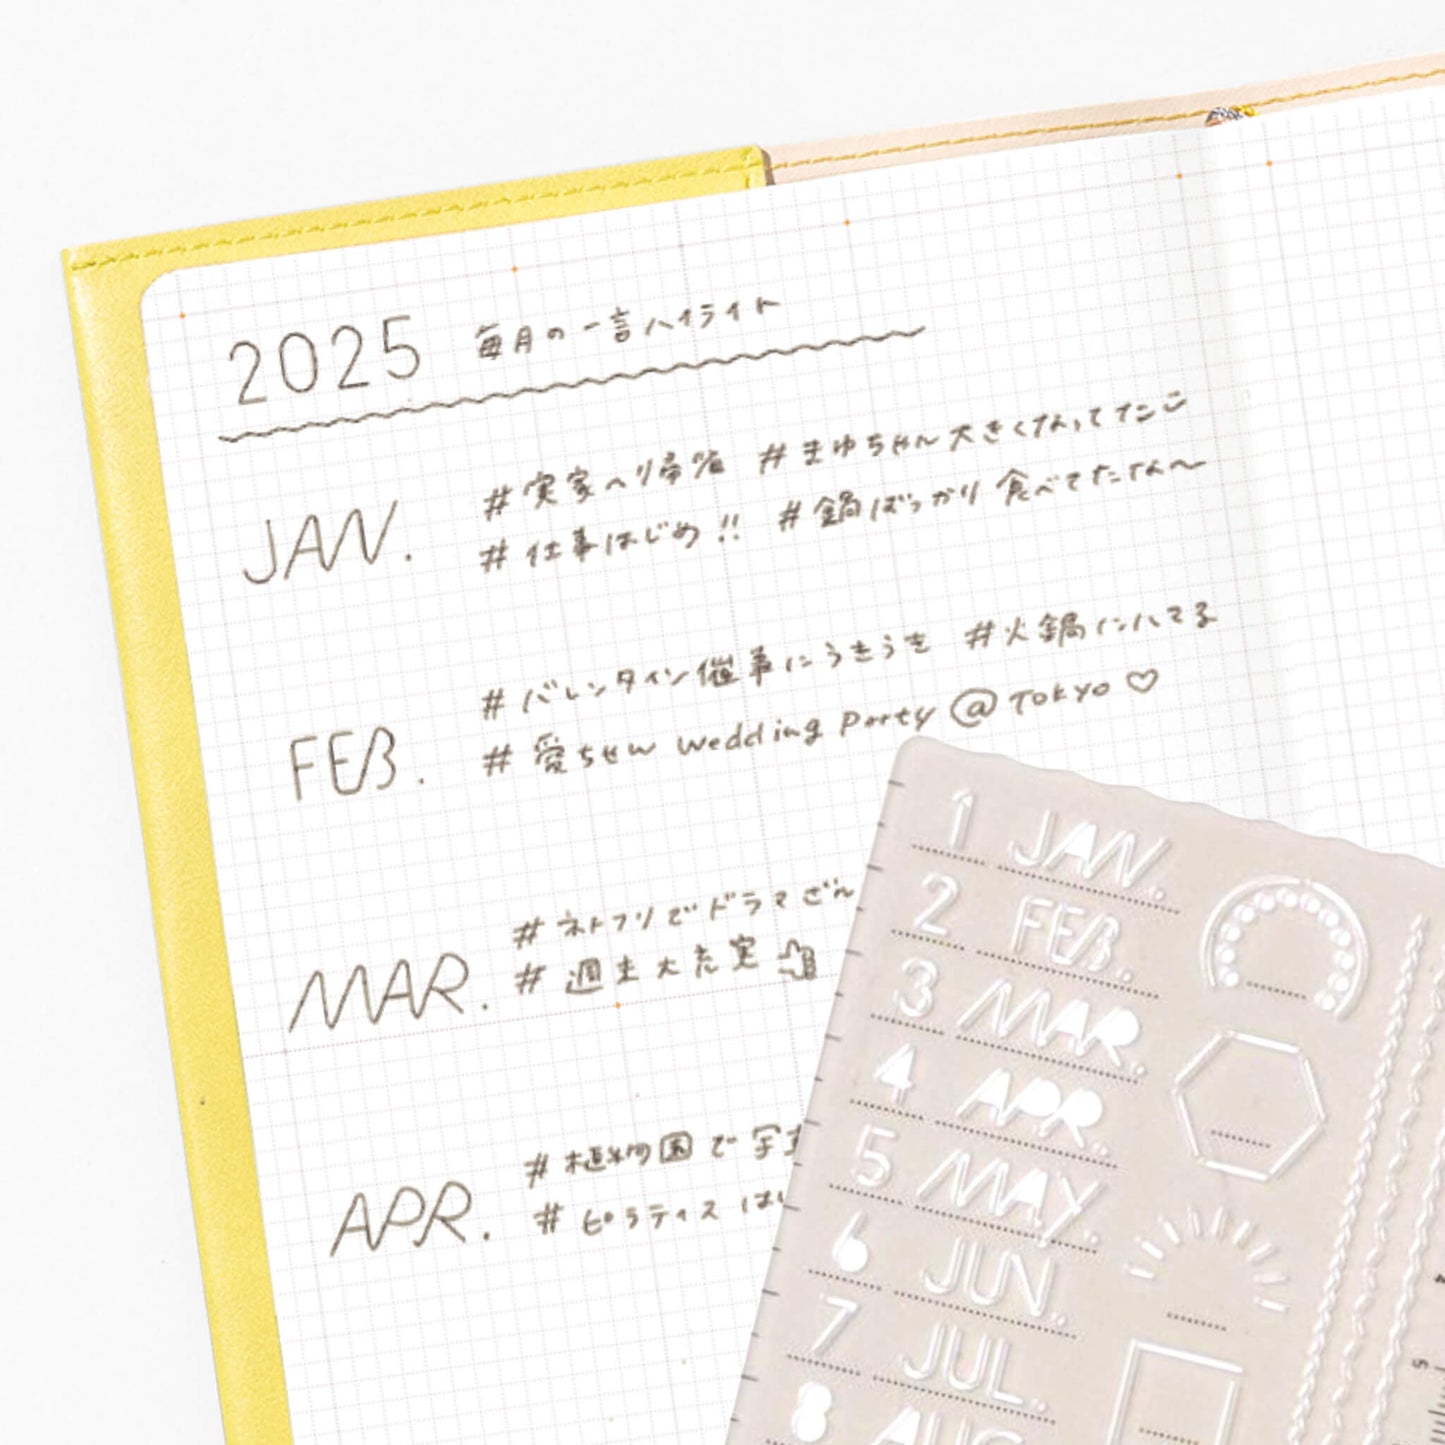 2025 毎月の一言ハイライト
JAN.
#実家へり帰省 #まゆちゃん大きくなってたこ
#仕事はじめ!! #鍋ばっかり食べてたなん〜
FEB.
#バレンタイン催事にうきうき #火鍋にハマる
#愛ちゃん wedding Party @TOKYO♡
MAR.
#ネトフリでドラマざん
#週末大充実
APR.
#植物園で写
#ピラティス は
1 JAN.
2 FEB.
3 MAR.
4 APR.
5 MAY.
6 JUN.
7 JUL.
8 AUG
5